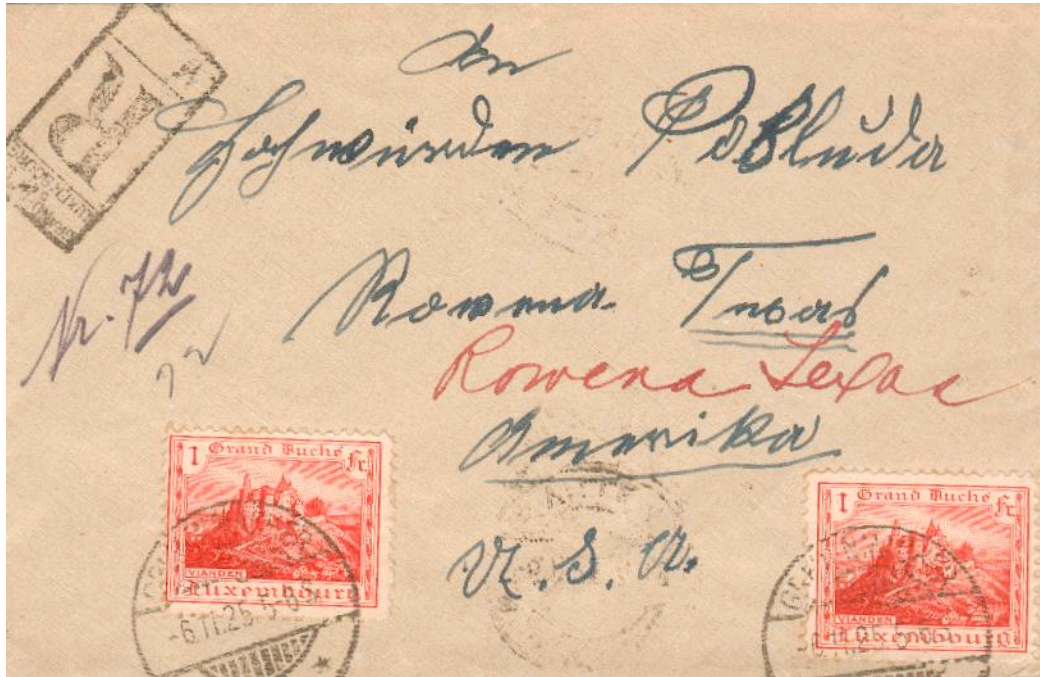 An
Hochwürden Pobluda
R
Nr. 72
72
Rowena Texas
Rowena Texas
Amerika
U. S. A.
1 Grand Duché Fr.
VIANDEN
Luxembourg
-6.11.25 5-6
1 Grand Duché Fr.
VIANDEN
Luxembourg
6.11.25 5-6